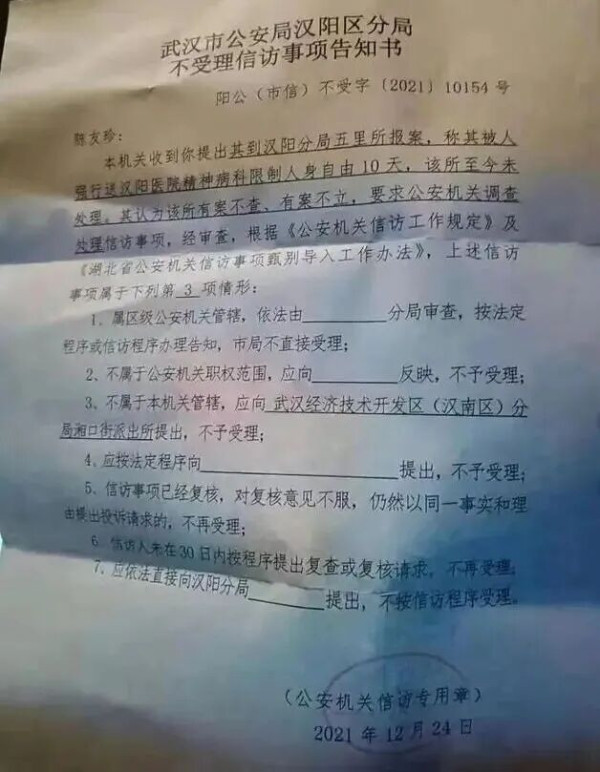 武汉市公安局汉阳区分局
不受理信访事项告知书
阳公（市信）不受字〔2021〕10154 号
陈友珍：
本机关收到你提出其到汉阳分局五里所报案，称其被人
强行送汉阳医院精神病科限制人身自由 10 天，该所至今未
处理。其认为该所有案不查、有案不立，要求公安机关调查
处理信访事项，经审查，根据《公安机关信访工作规定》及
《湖北省公安机关信访事项甄别导入工作办法》，上述信访
事项属于下列第 3 项情形：
1、属区级公安机关管辖，依法由________分局审查，按法定
程序或信访程序办理告知，市局不直接受理；
2、不属于公安机关职权范围，应向________反映，不予受理；
3、不属于本机关管辖，应向 武汉经济技术开发区（汉南区）分
局湘口街派出所提出，不予受理；
4、应按法定程序向________________提出，不予受理；
5、信访事项已经复核，对复核意见不服，仍然以同一事实和理
由提出投诉请求的，不再受理；
6、信访人未在 30 日内按程序提出复查或复核请求，不再受理；
7、应依法直接向汉阳分局________提出，不按信访程序受理。
（公安机关信访专用章）
2021 年 12 月 24 日